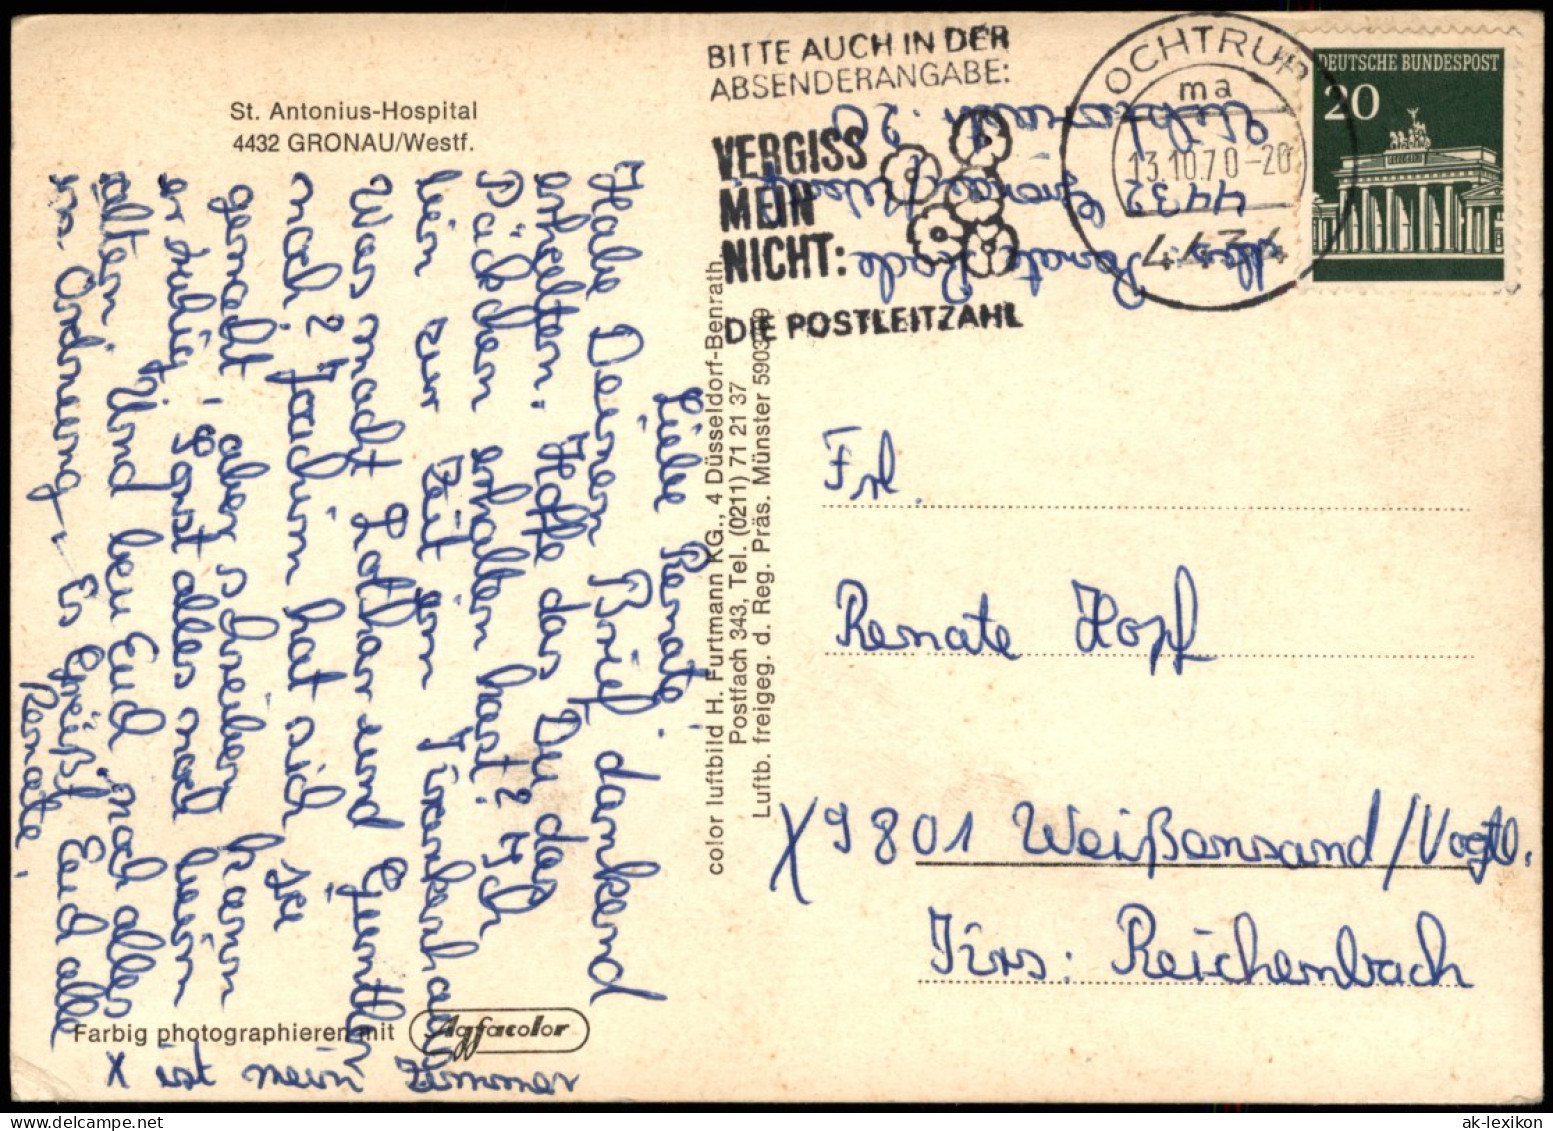 St. Antonius-Hospital
4432 GRONAU/Westf.
BITTE AUCH IN DER
ABSENDERANGABE:
VERGISS
MEIN
NICHT:
DIE POSTLEITZAHL
OCHTRUP
ma
13.10.70-20
4434
DEUTSCHE BUNDESPOST
20
Abs. Renate Rade
4432 Gronau/Westf.
20
Liebe Renate!
Habe Deinen Brief dankend
erhalten. Hoffe das Du das
Päckchen erhalten hast? Ich
bin zur Zeit im Krankenhaus
Was macht Lothar und Günther
nach? Joachim hat sich sie
gemacht, aber schreiben kann
er ruhig! Sonst alles noch beim
altem. Und bei Euch noch alles
in Ordnung. Es Grüßt Euch alle
Renate
color luftbild H. Furtmann KG., 4 Düsseldorf-Benrath,
Postfach 343, Tel. (0211) 71 21 37
Luftb. freigeg. d. Reg. Präs. Münster
Frl.
Renate Hopf
X9801 Weißensand/Vogtl.
Krs: Reichenbach
Farbig photographieren mit Agfacolor
X ist mein Zimmer
ak-lexikon.com